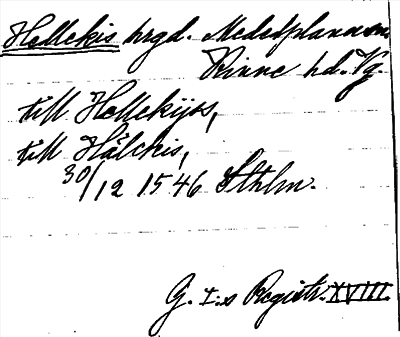 Hellekis hrgd. Medelplana sn,
Kinne hd. Vg.
till Hellekijss,
till Hälekis,
30/12 1546 Sthlm.
G. I:s Registr. XVIII.